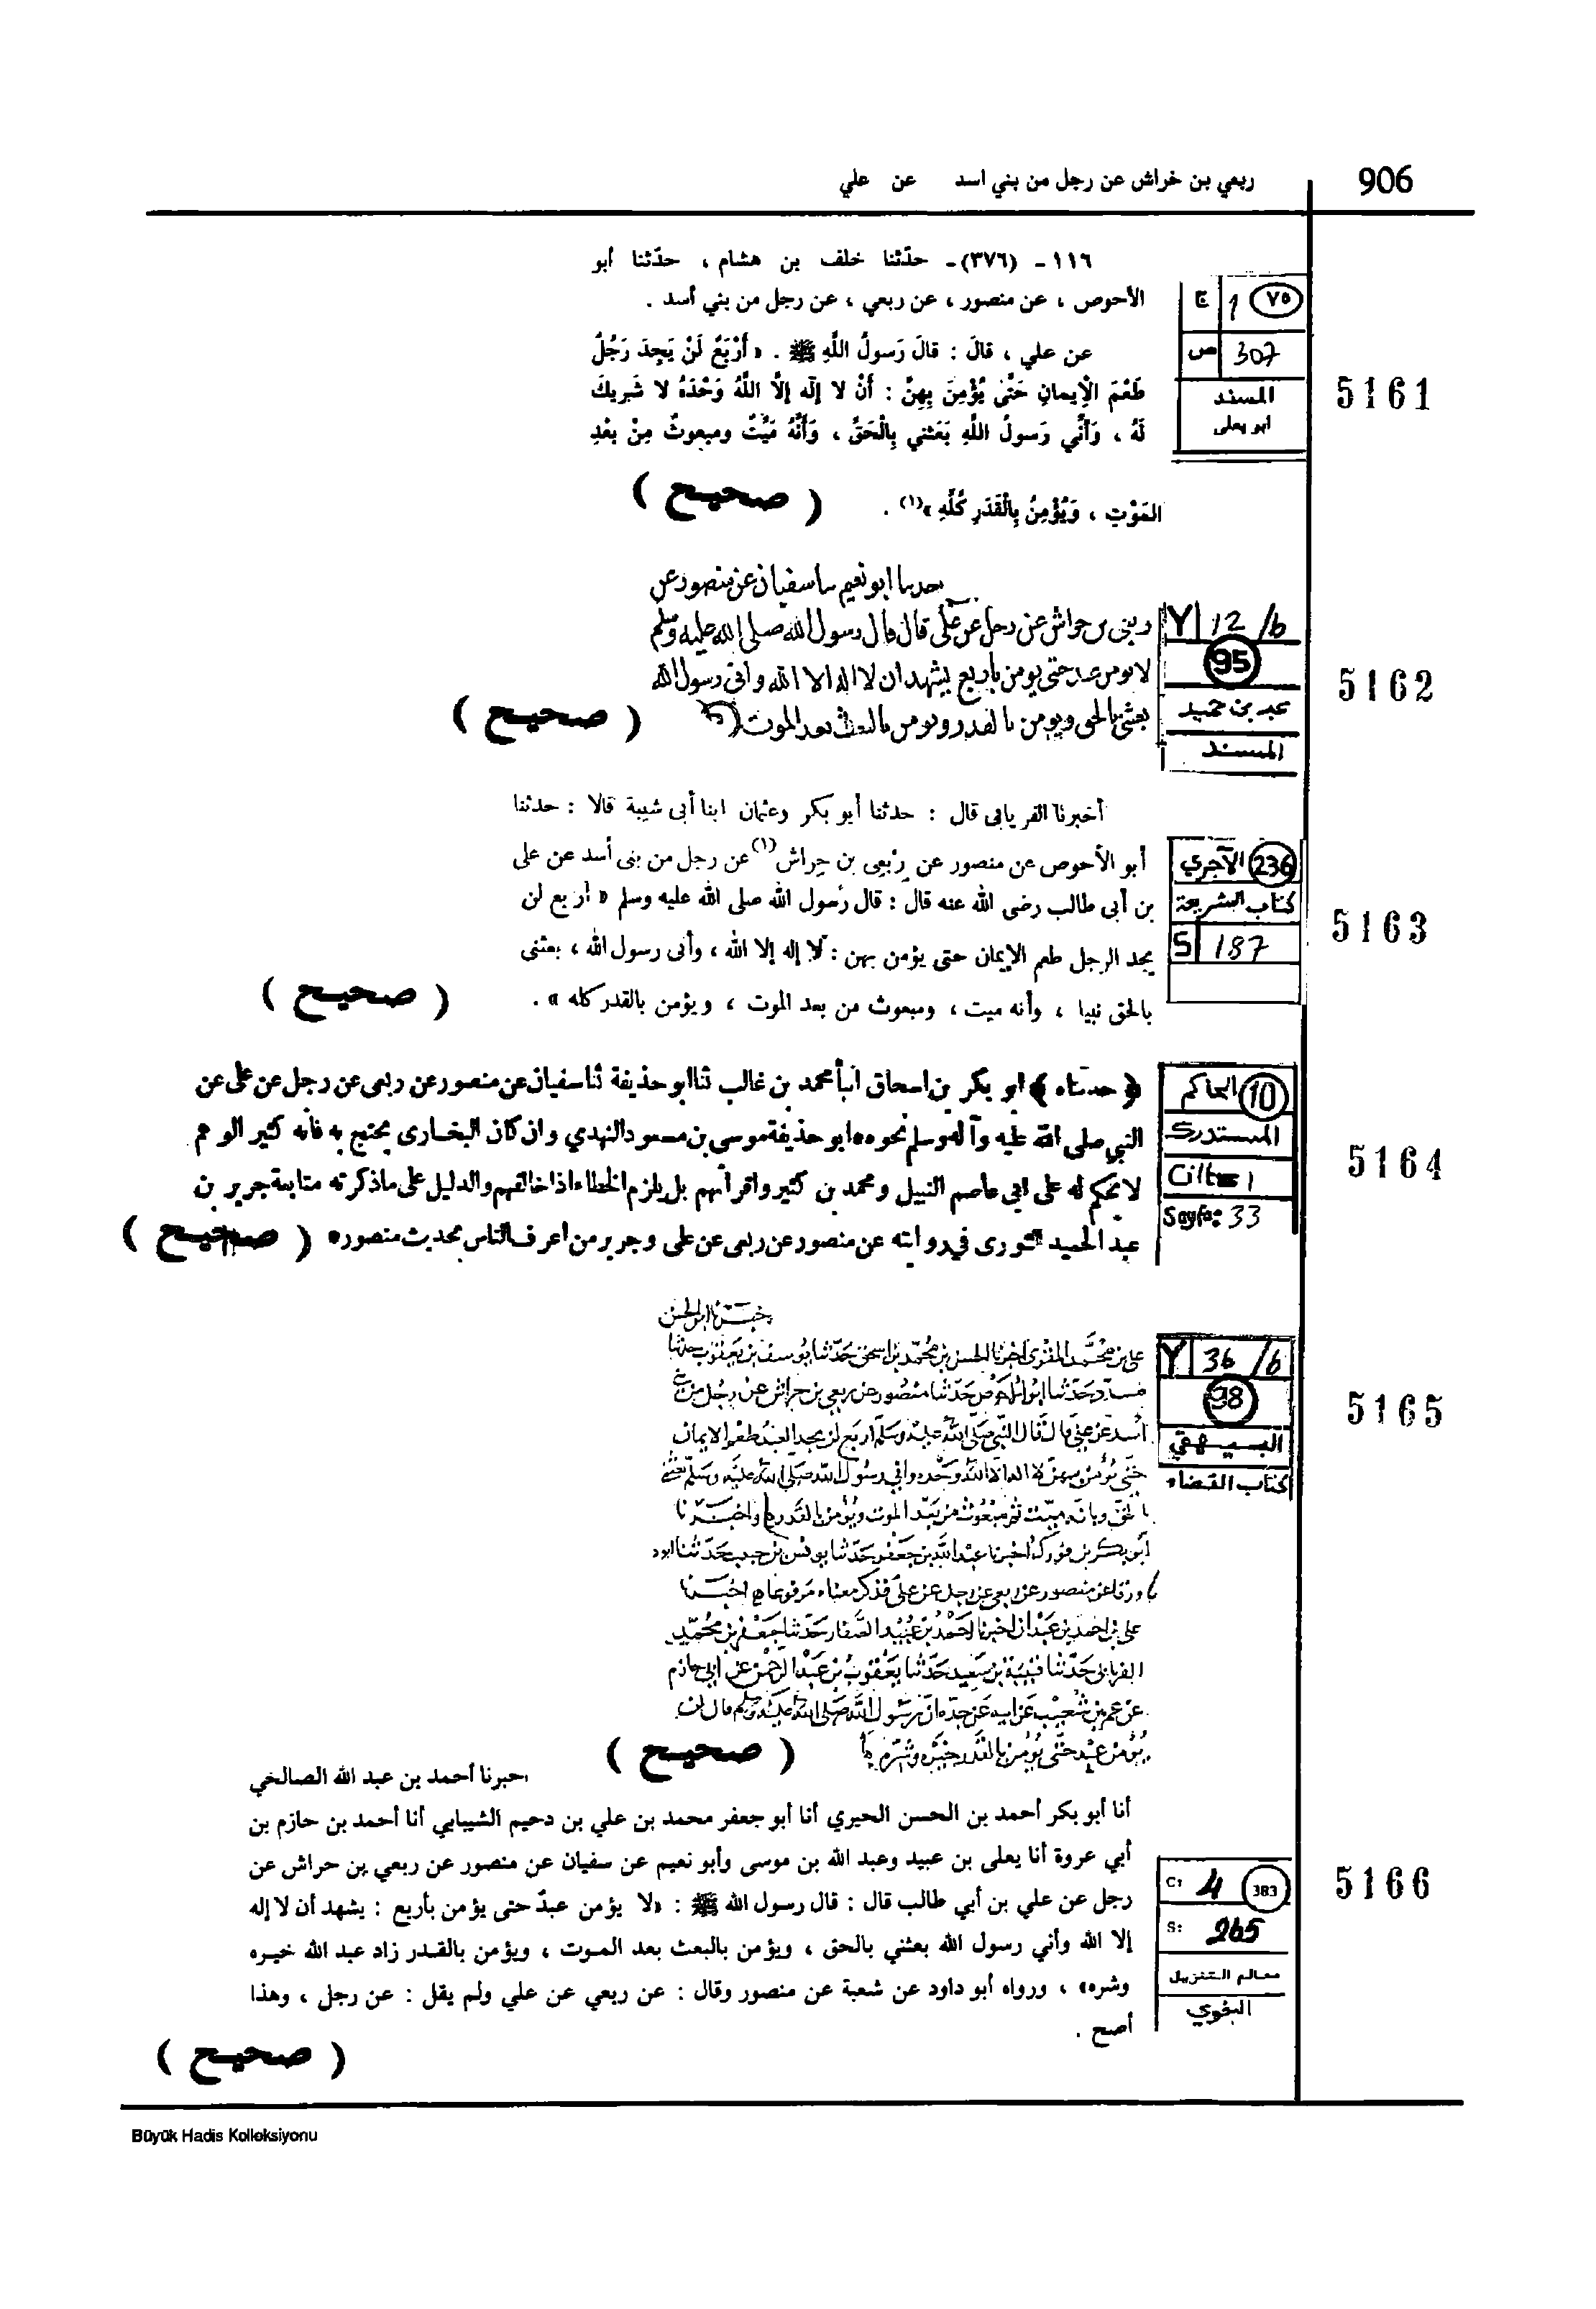 906
ربعي بن خراش عن رجل من بني اسد عن علي
١١٦ - (٣٧٦) - حدّثنا خلف بن هشام ، حدّثنا أبو
الأحوص ، عن منصور ، عن ربعي ، عن رجل من بني أسد .
عن علي ، قالَ : قالَ رَسولُ اللَّهِ ﷺ . « أَرْبَعٌ لَنْ يَجِدَ رَجُلٌ
طَعْمَ الْإِيمانِ حَتَّى يُؤْمِنَ بِهِنَّ : أَنْ لا إلٰه إلَّا اللَّهُ وَحْدَهُ لا شَريكَ
لَهُ ، وَأَنِّي رَسولُ اللَّهِ بَعَثني بِالْحَقِّ ، وَأَنَّهُ مَيِّتٌ ومبعوثٌ مِنْ بعْدِ
المَوْتِ ، وَيُؤْمِنُ بِالْقَدَرِ كُلِّهِ »(١) .
( صحيح )
ج 1 ٧٥
ص 307
المسند
أبو يعلى
5161
حدثنا ابو نعيم سا سفيان عن منصور عن
ربعي بن حراش عن رجل عن علي قال قال رسول الله صلى الله عليه وسلم
لا يومن عبد حتى يومن باربع يشهد ان لا اله الا الله واني رسول الله
بعثني بالحق ويومن بالقدر ويومن بالبعث بعد الموت
( صحيح )
Y 12/b
95
عبد بن حميد
المسند
5162
أخبرنا الفريابى قال : حدثنا أبو بكر وعثمان ابنا أبى شيبة قالا : حدثنا
أبو الأحوص عن منصور عن رِبْعِى بن حِراش(١) عن رجل من بنى أسد عن على
بن أبى طالب رضى الله عنه قال : قال رسُول الله صلى الله عليه وسلم « أربع لن
يجد الرجل طعم الإيمان حتى يؤمن بهن : لا إله إلا الله ، وأنى رسول الله ، بعثنى
بالحق نبيا ، وأنه ميت ، ومبعوث من بعد الموت ، ويؤمن بالقدر كله » .
( صحيح )
الآجري 236
كتاب الشريعة
S 187
5163
﴿ حدثناه ﴾ ابو بكر بن اسحاق أنبأ محمد بن غالب ثنا ابو حذيفة ثنا سفيان عن منصور عن ربعى عن رجل عن على عن
النبي صلى الله عليه وآله وسلم نحوه * ابو حذيفة موسى بن مسعود النهدي وان كان البخارى يحتج به فأنه كثير الوهم
لا يحكم له على ابي عاصم النبيل ومحمد بن كثير واقرانهم بل يلزم الخطاء اذا خالفهم والدليل على ما ذكرته متابعة جرير بن
عبد الحميد الثورى في روايته عن منصور عن ربعى عن على وجرير من اعرف الناس بحديث منصور *
( صحيح )
الحاكم 10
المستدرك
Cilt: 1
Sayfa: 33
5164
اخبرنا ابو الحسن
علي بن محمد المقرى اخبرنا الحسن بن محمد بن اسحق حدثنا يوسف بن يعقوب حدثنا
مسدد حدثنا ابو الاحوص حدثنا منصور عن ربعي بن حراش عن رجل من بني
اسد عن علي قال قال النبي صلى الله عليه وسلم اربع لن يجد العبد طعم الايمان
حتى يؤمن بهن لا اله الا الله وحده واني رسول الله صلى الله عليه وسلم بعثني
بالحق وبانه ميت ثم مبعوث من بعد الموت ويؤمن بالقدر واخبرنا
ابو بكر بن فورك اخبرنا عبد الله بن جعفر حدثنا يونس بن حبيب حدثنا ابو د
ورقا عن منصور عن ربعي عن رجل عن علي فذكر معناه مرفوعا اخبرنا
علي بن احمد بن عبدان اخبرنا احمد بن عبيد الصفار حدثنا جعفر بن محمد
الفريابي حدثنا قتيبة بن سعيد حدثنا يعقوب بن عبد الرحمن عن ابي حازم
عن عمرو بن شعيب عن ابيه عن جده ان رسول الله صلى الله عليه وسلم قال لن
يؤمن عبد حتى يؤمن بالقدر خيره وشره
( صحيح )
Y 36/b
98
البيهقي
كتاب القضاء
5165
أخبرنا أحمد بن عبد الله الصالحي
أنا أبو بكر أحمد بن الحسن الحيري أنا أبو جعفر محمد بن علي بن دحيم الشيباني أنا أحمد بن حازم بن
أبي عروة أنا يعلى بن عبيد وعبد الله بن موسى وأبو نعيم عن سفيان عن منصور عن ربعي بن حراش عن
رجل عن علي بن أبي طالب قال : قال رسول الله ﷺ : «لا يؤمن عبدٌ حتى يؤمن بأربع : يشهد أن لا إله
إلا الله وأني رسول الله بعثني بالحق ، ويؤمن بالبعث بعد الموت ، ويؤمن بالقدر زاد عبد الله خيره
وشره» ، ورواه أبو داود عن شعبة عن منصور وقال : عن ربعي عن علي ولم يقل : عن رجل ، وهذا
أصح .
( صحيح )
C: 4 383
S: 265
معالم التنزيل
البغوي
5166
Büyük Hadis Kolleksiyonu